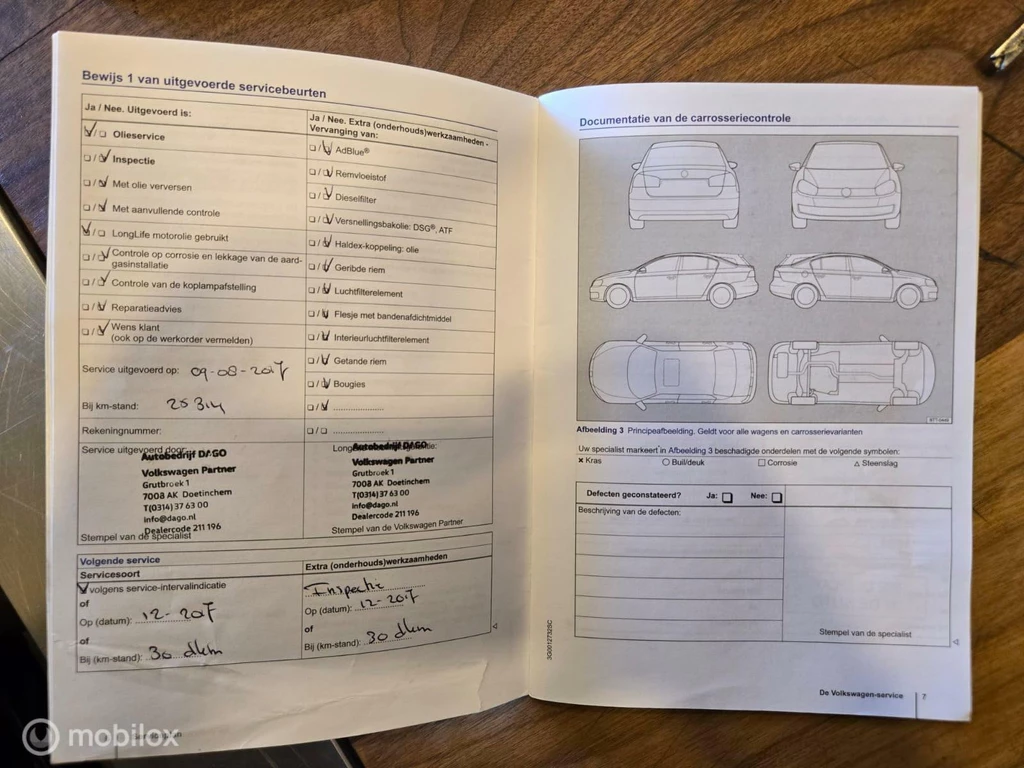 Bewijs 1 van uitgevoerde servicebeurten
Ja / Nee. Uitgevoerd is:
Olieservice
Inspectie
Met olie verversen
Met aanvullende controle
LongLife motorolie gebruikt
Controle op corrosie en lekkage van de aard-
gasinstallatie
Controle van de koplampafstelling
Reparatieadvies
Wens klant
(ook op de werkorder vermelden)
Service uitgevoerd op: 09-08-2017
Bij km-stand: 25314
Rekeningnummer:
Service uitgevoerd door:
Autobedrijf DAGO
Volkswagen Partner
Grutbroek 1
7008 AK Doetinchem
T(0314)37 63 00
info@dago.nl
Dealercode 211 196
Stempel van de specialist
Ja / Nee. Extra (onderhouds)werkzaamheden -
Vervanging van:
AdBlue®
Remvloeistof
Dieselfilter
Versnellingsbakolie: DSG®, ATF
Haldex-koppeling: olie
Geribde riem
Luchtfilterelement
Flesje met bandenafdichtmiddel
Interieurluchtfilterelement
Getande riem
Bougies
Autobedrijf DAGO
Volkswagen Partner
Grutbroek 1
7008 AK Doetinchem
T(0314)37 63 00
info@dago.nl
Dealercode 211 196
Stempel van de Volkswagen Partner
Volgende service
Servicesoort
volgens service-intervalindicatie
of
Op (datum): 12-2017
of
Bij (km-stand): 30 dkm
Extra (onderhouds)werkzaamheden
Inspectie
Op (datum): 12-2017
of
Bij (km-stand): 30 dkm
Documentatie van de carrosseriecontrole
Afbeelding 3 Principeafbeelding. Geldt voor alle wagens en carrosserievarianten
Uw specialist markeert in Afbeelding 3 beschadigde onderdelen met de volgende symbolen:
Kras Buil/deuk Corrosie Steenslag
Defecten geconstateerd? Ja: Nee:
Beschrijving van de defecten:
Stempel van de specialist
3G0012732SC
De Volkswagen-service 7
mobilox